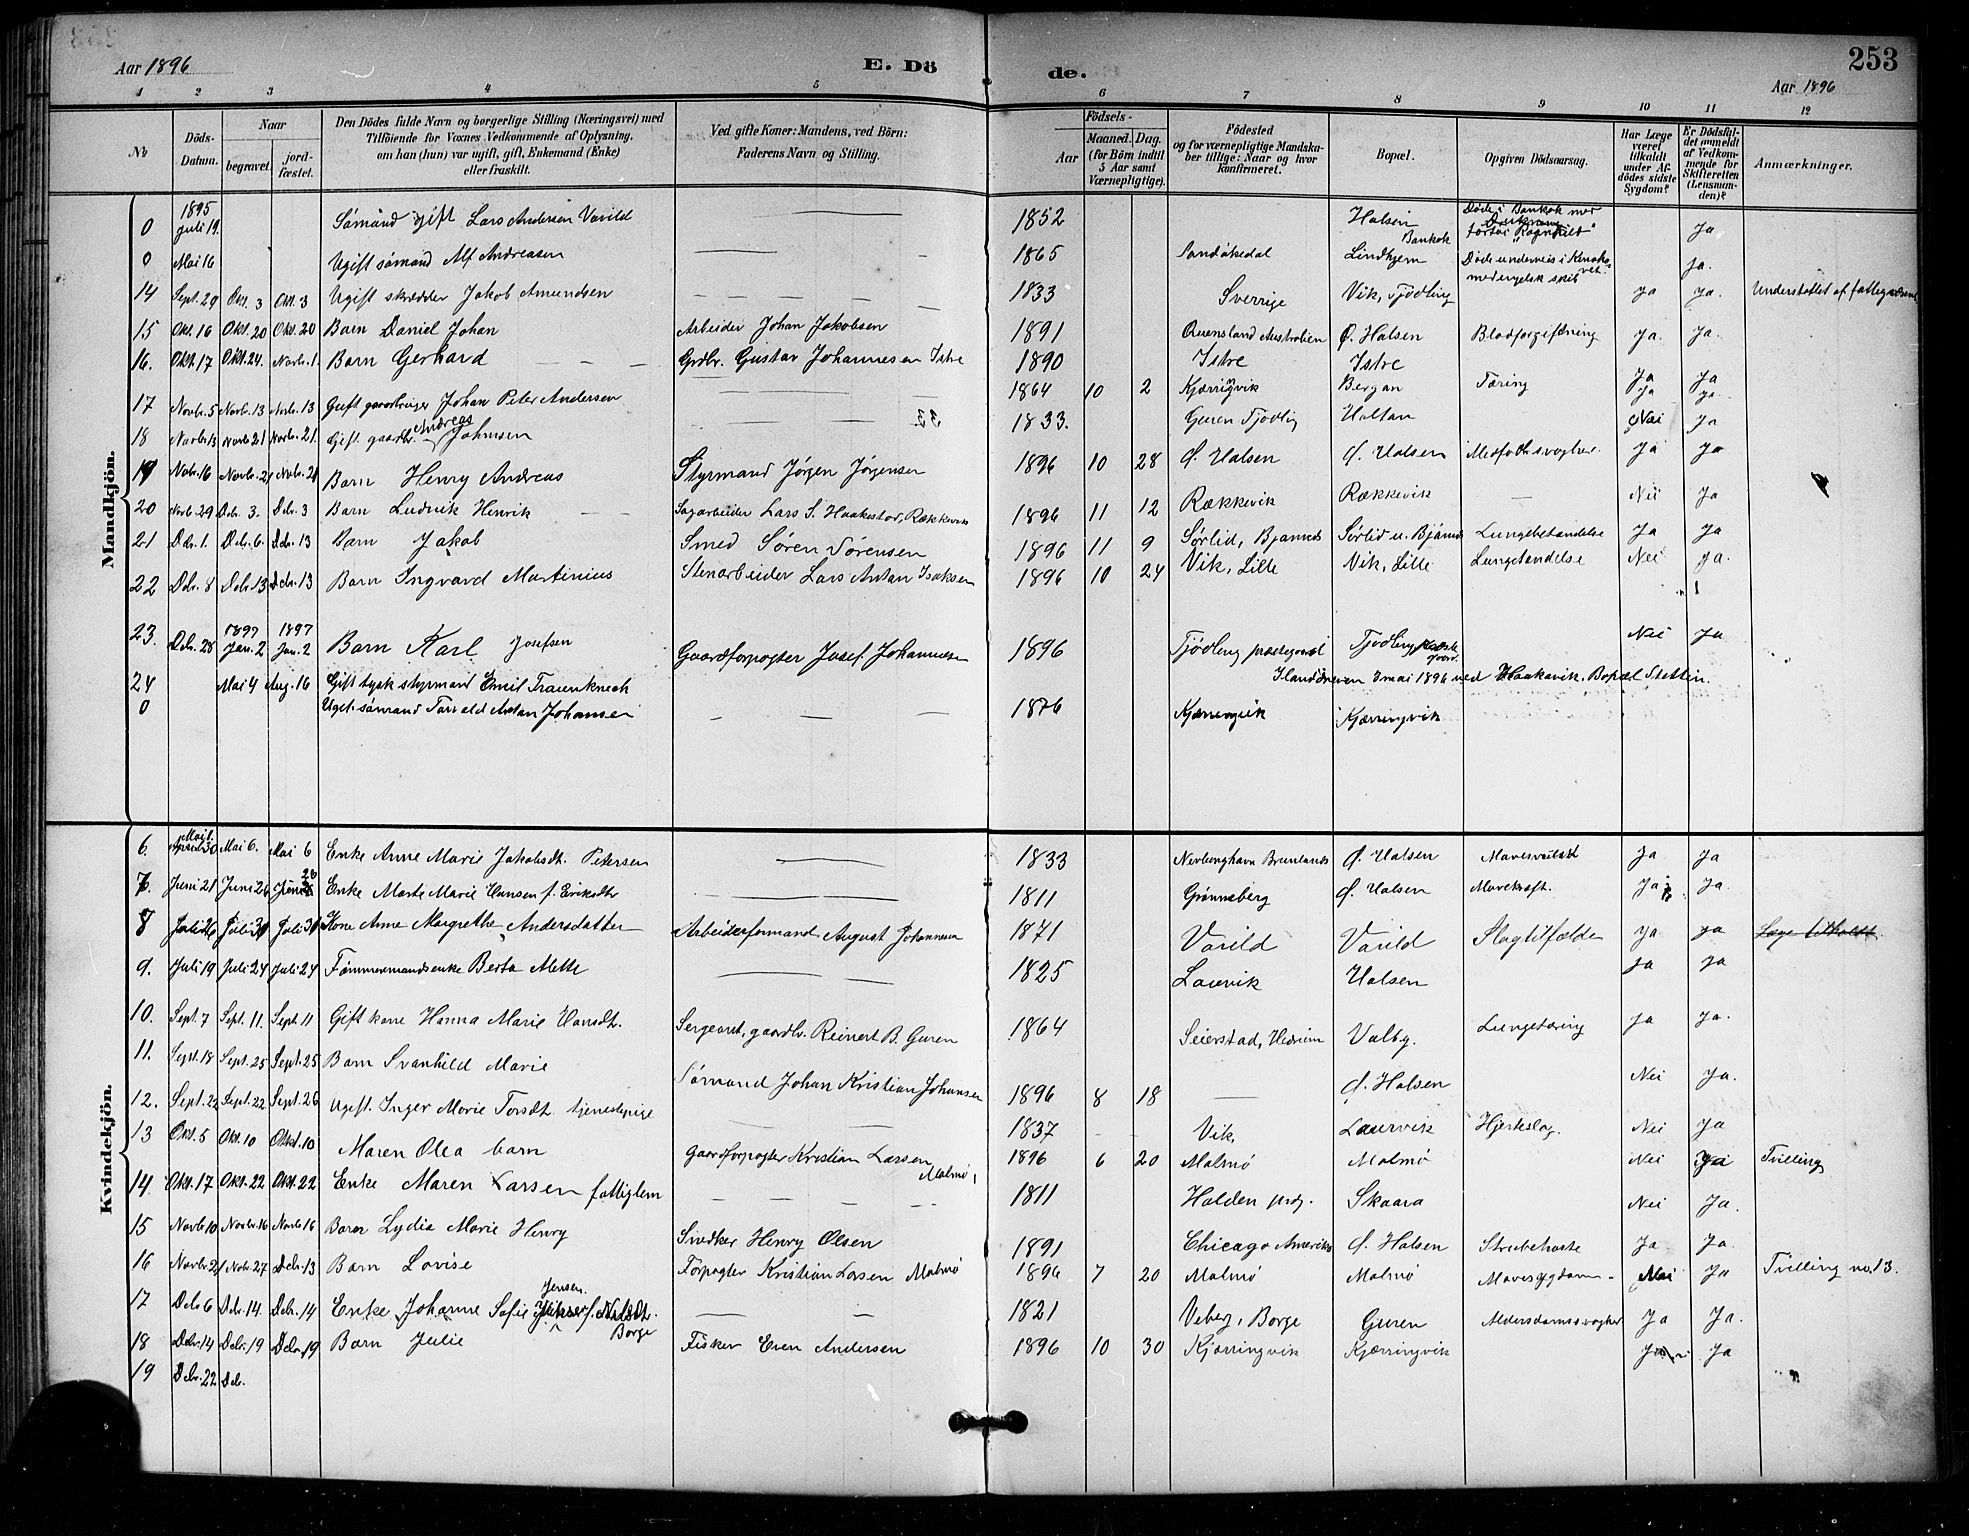 Aar 1896
E. Dö
de.
253
Aar 1896
1 2 3 4 5 6 7 8 9 10 11 12
No
Döds-
Datum.
Naar
begravet.
jord-
fæstet.
Den Dödes fulde Navn og borgerlige Stilling (Næringsvei) med
Tilföiende for Voxnes Vedkommende af Oplysning,
om han (hun) var ugift, gift, Enkemand (Enke)
eller fraskilt.
Ved gifte Koner: Mandens, ved Börn:
Faderens Navn og Stilling.
Födsels-
Aar
Maaned. Dag.
(for Börn indtil
5 Aar samt
Værnepligtige).
Födested
og for værnepligtige Mandska-
ber tillige: Naar og hvor
konfirmeret.
Bopæl.
Opgiven Dödsaarsag.
Har Læge
været
tilkaldt
under Af-
dödes sidste
Sygdom?
Er Dödsfal-
det anmeldt
af Vedkom-
mende for
Skifteretten
(Lensman-
den)?
Anmærkninger.
Mandkjön.
0 1895 Juli 19. Sømand gift Lars Andersen Varild 1852 Halsen Bankok Døde i Bankok med "Ragnhild" Ja
0 Mai 16 Ugift sømand Alf Andreasen 1865 Sandøkedal Lindhjem Døde underveis i med engelsk skib Ja.
14 Sept. 29 Okt. 3 Okt. 3 Ugift skrædder Jakob Amundsen 1833 Sverrige Vik, Tjødling Ja Ja. Understøttet af
15 Okt. 16 Okt. 20 Okt. 20 Barn Daniel Johan Arbeider Johan Jakobsen 1891 Ø. Halsen Blodforgiftning Ja. Ja.
16. Okt. 17 Okt. 24. Novbr. 1. Barn Gerhard Grdbr. Gustav Johannesen Istre 1890 Istre Istre Ja Ja
17 Novbr. 5 Novbr. 13 Novbr. 13 Gift gaardbruger Johan Peter Andersen 1864 10 2 Kjærringvik Bergan Tæring Ja ja
18 Novbr. 13 Novbr. 21 Novbr. 21. Gift gaardbr. Andreas Johnsen 1833. Guren Tjødling Holtan Nei Ja
19 Novbr. 16 Novbr. 21 Novbr. 21 Barn Henry Andreas Styrmand Jørgen Jørgensen 1896 10 28 Ø. Halsen Ø. Halsen Ja Ja
20 Novbr. 29 Dcbr. 3. Dcbr. 3 Barn Ludvik Henrik Sagarbeider Lars S. Rækkevik 1896 11 12 Rækkevik Rækkevik Nei Ja
21 Dcbr. 1. Dcbr. 6. Dcbr. 13 Barn Jakob Smed Søren Sørensen 1896 11 9 Sørlid, Sørlid Lungebetændelse Ja Ja
22 Dcbr. 8 Dcbr. 13 Dcbr. 13 Barn Ingvard Martinius Stenarbeider Lars Anton Isaksen 1896 10 24 Vik, Lille Vik, Lille Nei Ja.
23. Dcbr. 28 1897 Jan. 2 1897 Jan. 2 Barn Karl Josefsen Gaardforpagter Josef Johannesen 1896 Tjødling præstegaard Tjødling Nei Ja
24 Mai 4 Aug. 16 Gift tysk styrmand Emil Trauenknech Ilanddreven 3 mai 1896 ved Haakavik. Bopæl Stettin.
0 Ugift sømand Anton Johansen 1876 Kjærringvik Kjærringvik
Kvindekjön.
6. April 30 Mai 6. Mai 6 Enke Anne Marie Jakobsdt. Petersen 1833 Nevlunghavn Brunlanes Ø. Halsen Ja Ja
7. Juni 21 Juni 26 Juni 26 Enke Marte Marie Hansen f. Eriksdtr 1811 Grønneberg Ø. Halsen Mavekræft. Ja Ja.
8 Juli 26 Juli 31 Juli 31 Kone Anne Margrethe Andersdatter Arbeiderformand August Johannesen 1871 Varild Varild Slagtilfælde Ja Ja
9. Juli 19 Juli 24 Juli 24 Tømmermandsenke Berta Mette 1825 Laurvik Halsen Ja Ja
10. Sept. 7 Sept. 11. Sept. 11 Gift kone Hanna Marie Hansdt. Sergeant, gaardbr. Reinert B. Guren 1864 Seierstad, Hedrum Valby. Lungetæring Ja Ja.
11. Sept. 18 Sept. 25 Sept. 25 Barn Svanhild Marie Sømand Johan Kristian Johansen 1896 8 18 Ø. Halsen Nei Ja.
12. Sept. 22 Sept. 22 Sept. 26 Ugift. Inger Marie Torsdt. tjenestepige 1837 Vik, Laurvik Hjerteslag. Nei Ja
13 Okt. 5 Okt. 10 Okt. 10 Maren Olea barn Gaardforpagter Kristian Larsen Malmø, 1896 6 20 Malmø Malmø Nei Ja Tvilling
14. Okt. 17 Okt. 22 Okt. 22 Enke Maren Larsen fattiglem 1811 Holden prgj. Skaara Nei Ja.
15 Novbr 10 Novbr. 16 Novbr 16 Barn Lydia Marie Henry Snedker Henry Olsen 1891 Chicago Amerika Ø. Halsen Strubehoste Ja Ja.
16 Novbr. 21 Nobr. 27 Dcbr. 13 Barn Lovise Forpagter Kristian Larsen Malmø 1896 7 20 Malmø Malmø Mavesygdom Nei Ja Tvilling no. 13.
17 Dcbr 6 Dcbr. 14. Dcbr. 14 Enke Johanne Sofie Jensen Borge 1821 Veberg, Borge Guren Ja Ja.
18 Dcbr. 14 Dcbr. 19 Dcbr. 19 Barn Julie Fisker Even Andersen 1896 10 30 Kjærringvik Kjærringvik Ja
19 Dcbr. 22 Dcb.